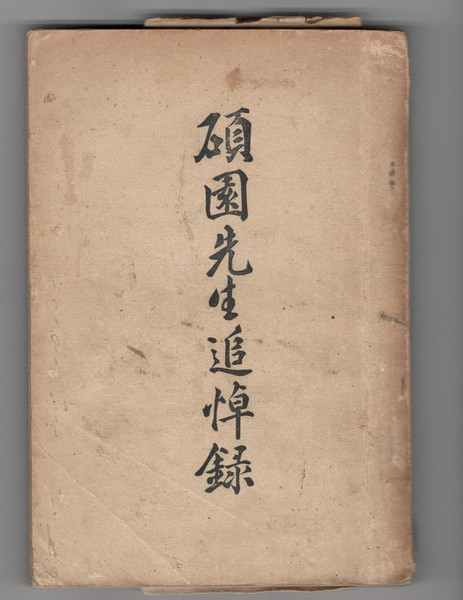 碩園先生追悼録